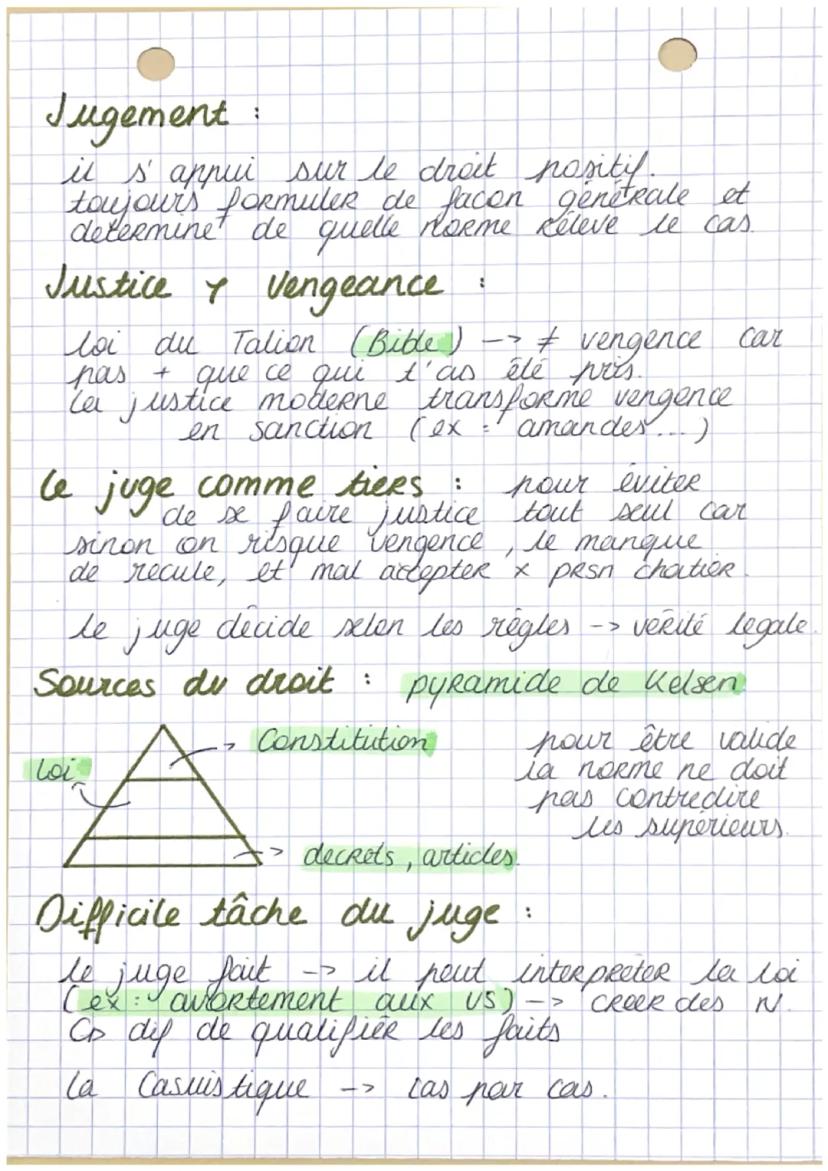 Jugement :
il s'appui sur le droit positif.
toujours formuler de façon générale et
determine de quelle norme réleve le cas.
Justice & Vengeance :
loi du Talion (Bible) --> ≠ vengence car
pas + que ce qui t'as été pris.
La justice moderne transforme vengence
en sanction (ex : amandes...)
Le juge comme tiers : pour éviter
de se faire justice tout seul car
sinon on risque vengence, le manque
de recule, et mal accepter x prsn chatier.
le juge décide selon les règles --> vérité legale.
Sources du droit : pyramide de Kelsen
Constitution
Loi
decrets, articles.
pour être valide
la norme ne doit
pas contredire
les supérieurs.
Difficile tâche du juge :
le juge fait --> il peut interpreter la loi
(ex : avortement aux US) --> creer des N.
↳ dif de qualifier les faits
La Casuistique --> cas par cas.